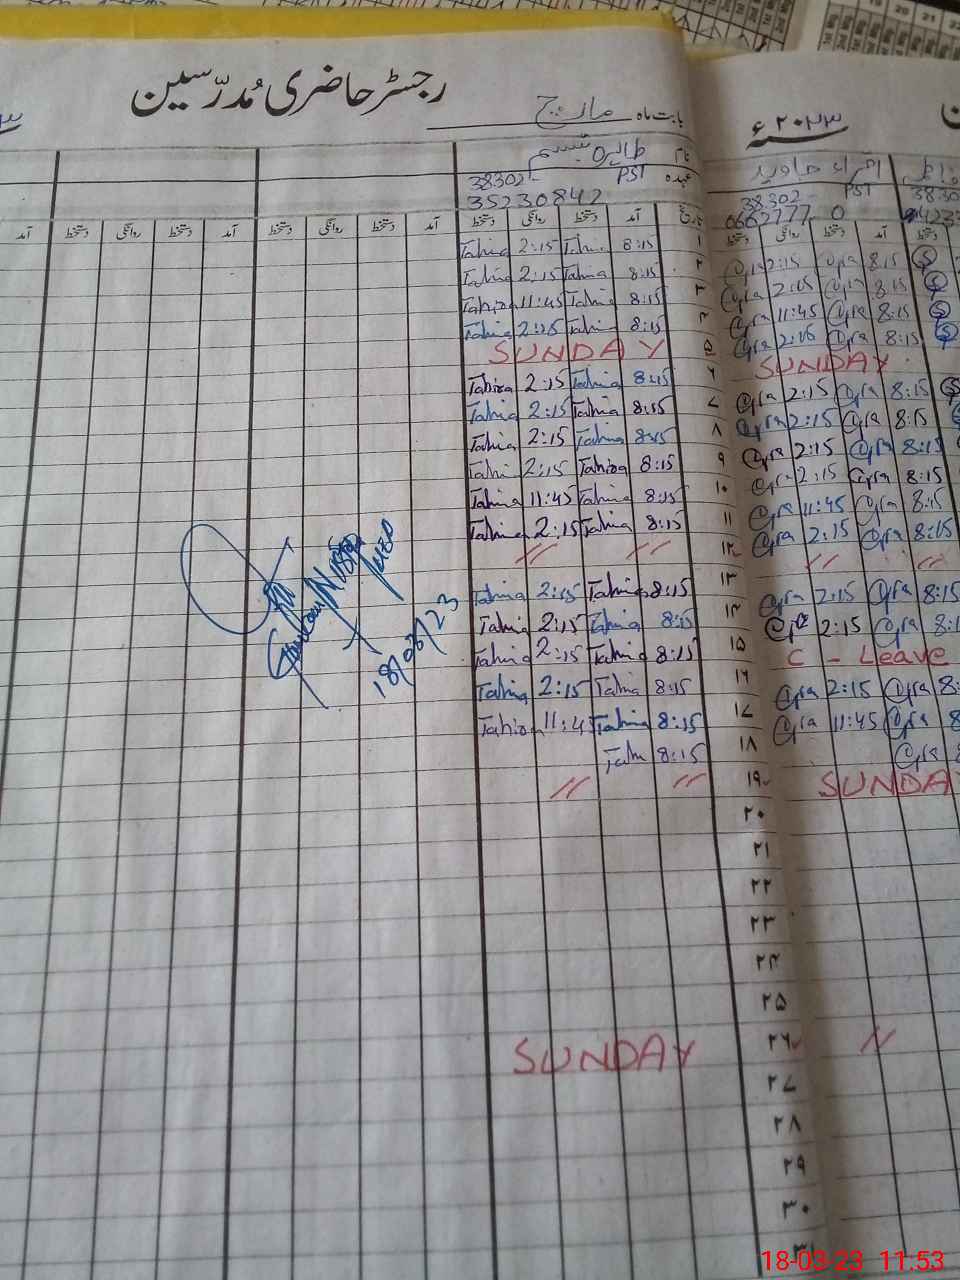 رجسٹر حاضری مُدرّسین
بابت ماہ مارچ
۲۰۲۳ سنہ
نام طاہرہ تبسم
عہدہ PST 38302-
35230842
اقراء جاوید
PST 38302-
0662777-0
تاریخ آمد دستخط روانگی دستخط آمد دستخط روانگی دستخط آمد دستخط روانگی دستخط آمد
آمد دستخط روانگی دستخط
۱ 8:15 Tahira 2:15 Tahira
۲ 8:15 Tahira 2:15 Tahira
۳ 8:15 Tahira 11:45 Tahira
۴ 8:15 Tahira 2:15 Tahira
۵ SUNDAY
۶ 8:15 Tahira 2:15 Tahira
۷ 8:15 Tahira 2:15 Tahira
۸ 8:15 Tahira 2:15 Tahira
۹ 8:15 Tahira 2:15 Tahira
۱۰ 8:15 Tahira 11:45 Tahira
۱۱ 8:15 Tahira 2:15 Tahira
۱۲ // //
۱۳ 8:15 Tahira 2:15 Tahira
۱۴ 8:15 Tahira 2:15 Tahira
۱۵ 8:15 Tahira 2:15 Tahira
۱۶ 8:15 Tahira 2:15 Tahira
۱۷ 8:15 Tahira 11:45 Tahira
۱۸ 8:15 Tahira
۱۹ // //
۲۰
۲۱
۲۲
۲۳
۲۴
۲۵
۲۶ SUNDAY
۲۷
۲۸
۲۹
۳۰
۳۱
18/03/23
8:15 Iqra 2:15 Iqra
8:15 Iqra 2:15 Iqra
8:15 Iqra 11:45 Iqra
8:15 Iqra 2:15 Iqra
SUNDAY
8:15 Iqra 2:15 Iqra
8:15 Iqra 2:15 Iqra
8:15 Iqra 2:15 Iqra
8:15 Iqra 2:15 Iqra
8:15 Iqra 11:45 Iqra
8:15 Iqra 2:15 Iqra
// //
8:15 Iqra 2:15 Iqra
Iqra 2:15 Iqra
C - Leave
Iqra 2:15 Iqra
Iqra 11:45 Iqra
Iqra
SUNDAY
//
18-03-23 11:53